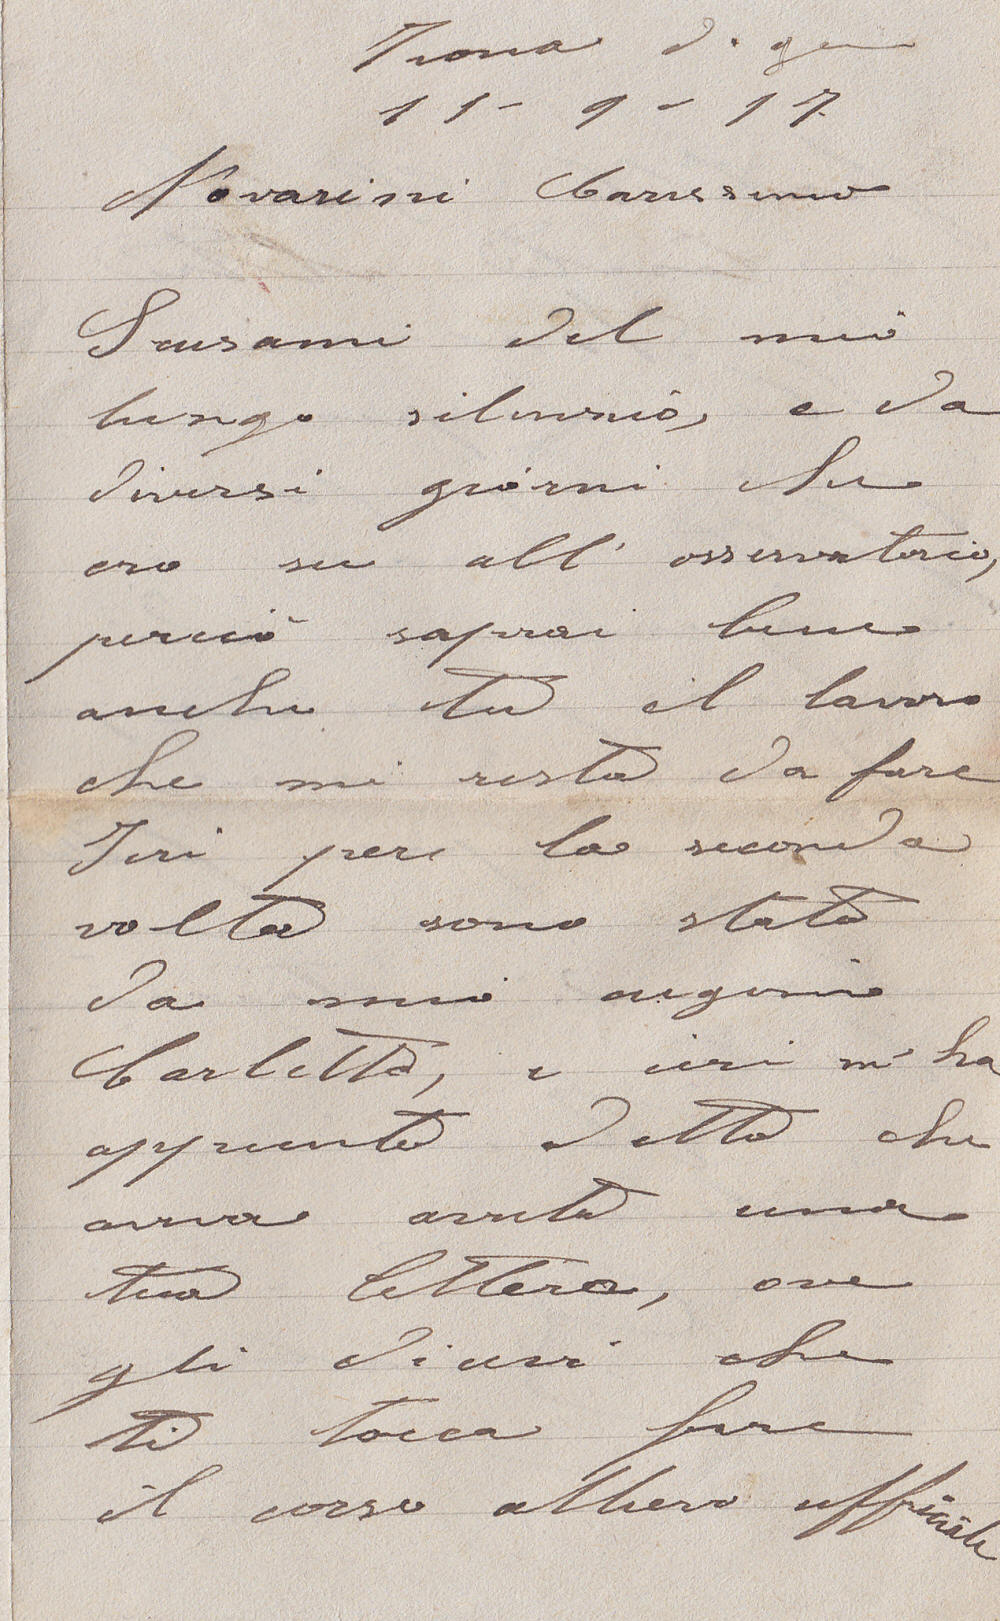 Zona di gu
11-9-17
Novarini Carissimo
Scusami del mio
lungo silenzio, e da
diversi giorni che
ero su all' osservatorio,
perciò saprai bene
anche tu il lavoro
che mi resta da fare
Ieri per la seconda
volta sono stato
da mio cugino
Carletto, e ieri m' ha
appunto detto che
aveva avuto una
tua lettera, ove
gli dicevi che
ti tocca fare
il corso allievo ufficiale